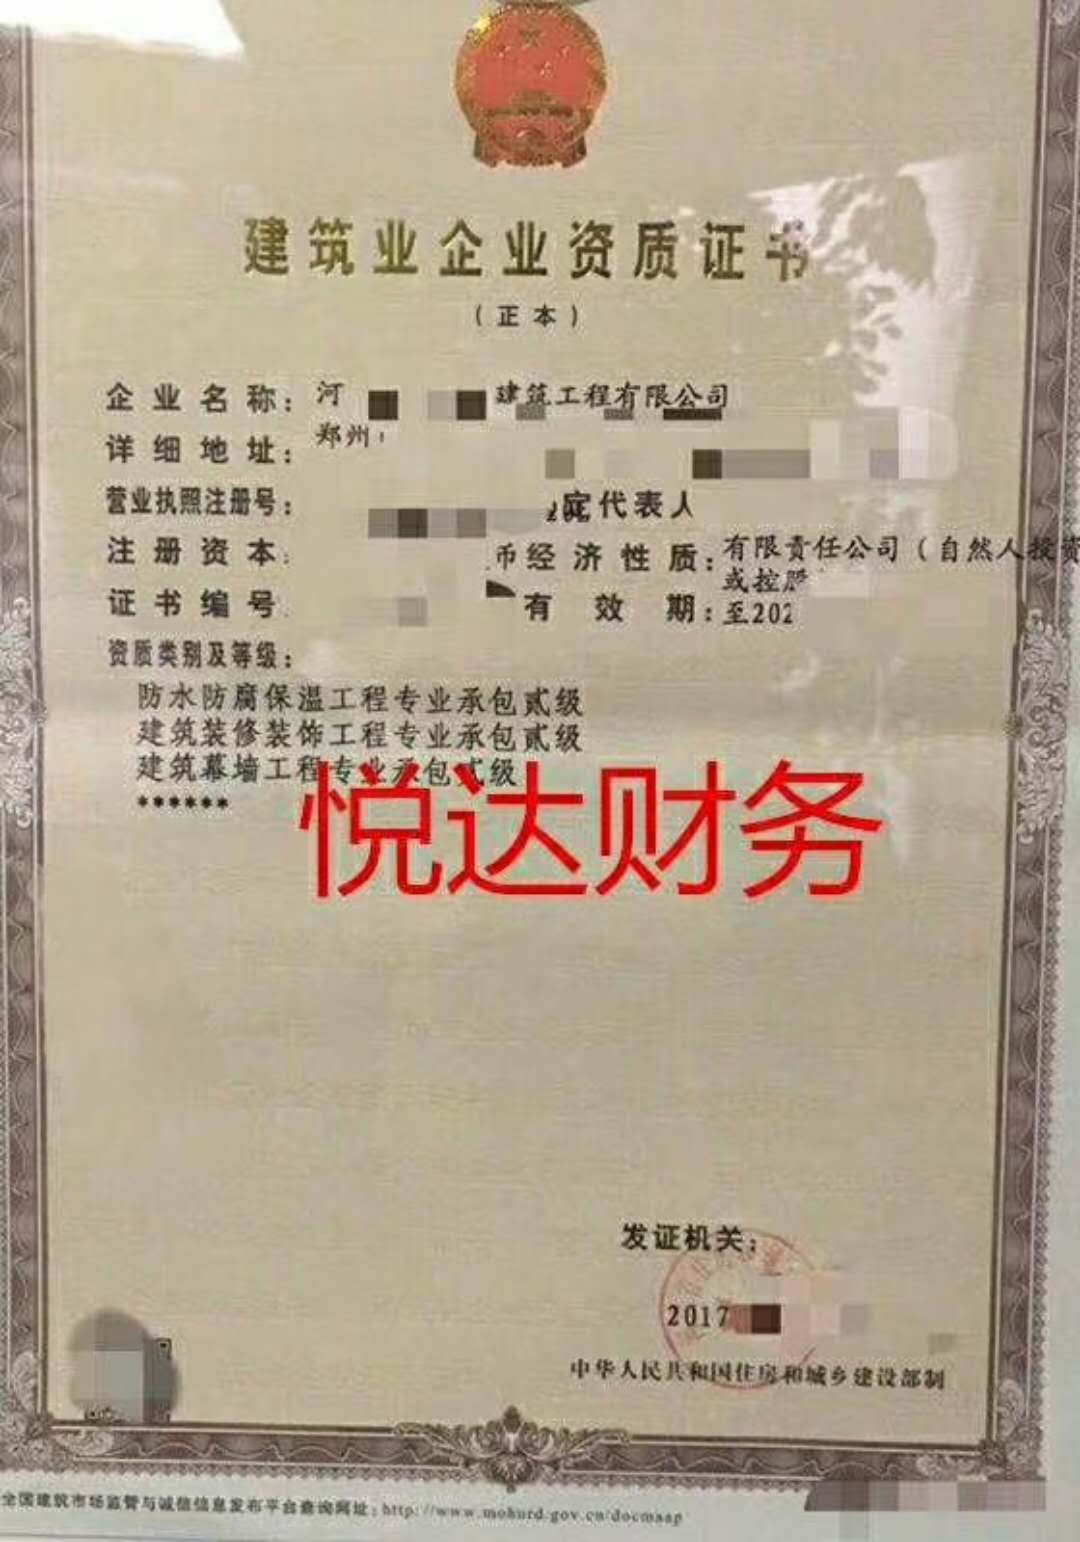 建筑业企业资质证书
（正本）
企业名称：河 建筑工程有限公司
详细地址：郑州
营业执照注册号： 定代表人
注册资本： 币 经济性质：有限责任公司（自然人投资
或控股
证书编号 有效期：至202
资质类别及等级：
防水防腐保温工程专业承包贰级
建筑装修装饰工程专业承包贰级
建筑幕墙工程专业承包贰级
******
悦达财务
发证机关：
2017
中华人民共和国住房和城乡建设部制
全国建筑市场监管与诚信信息发布平台查询网址：http://www.mohurd.gov.cn/docmaap